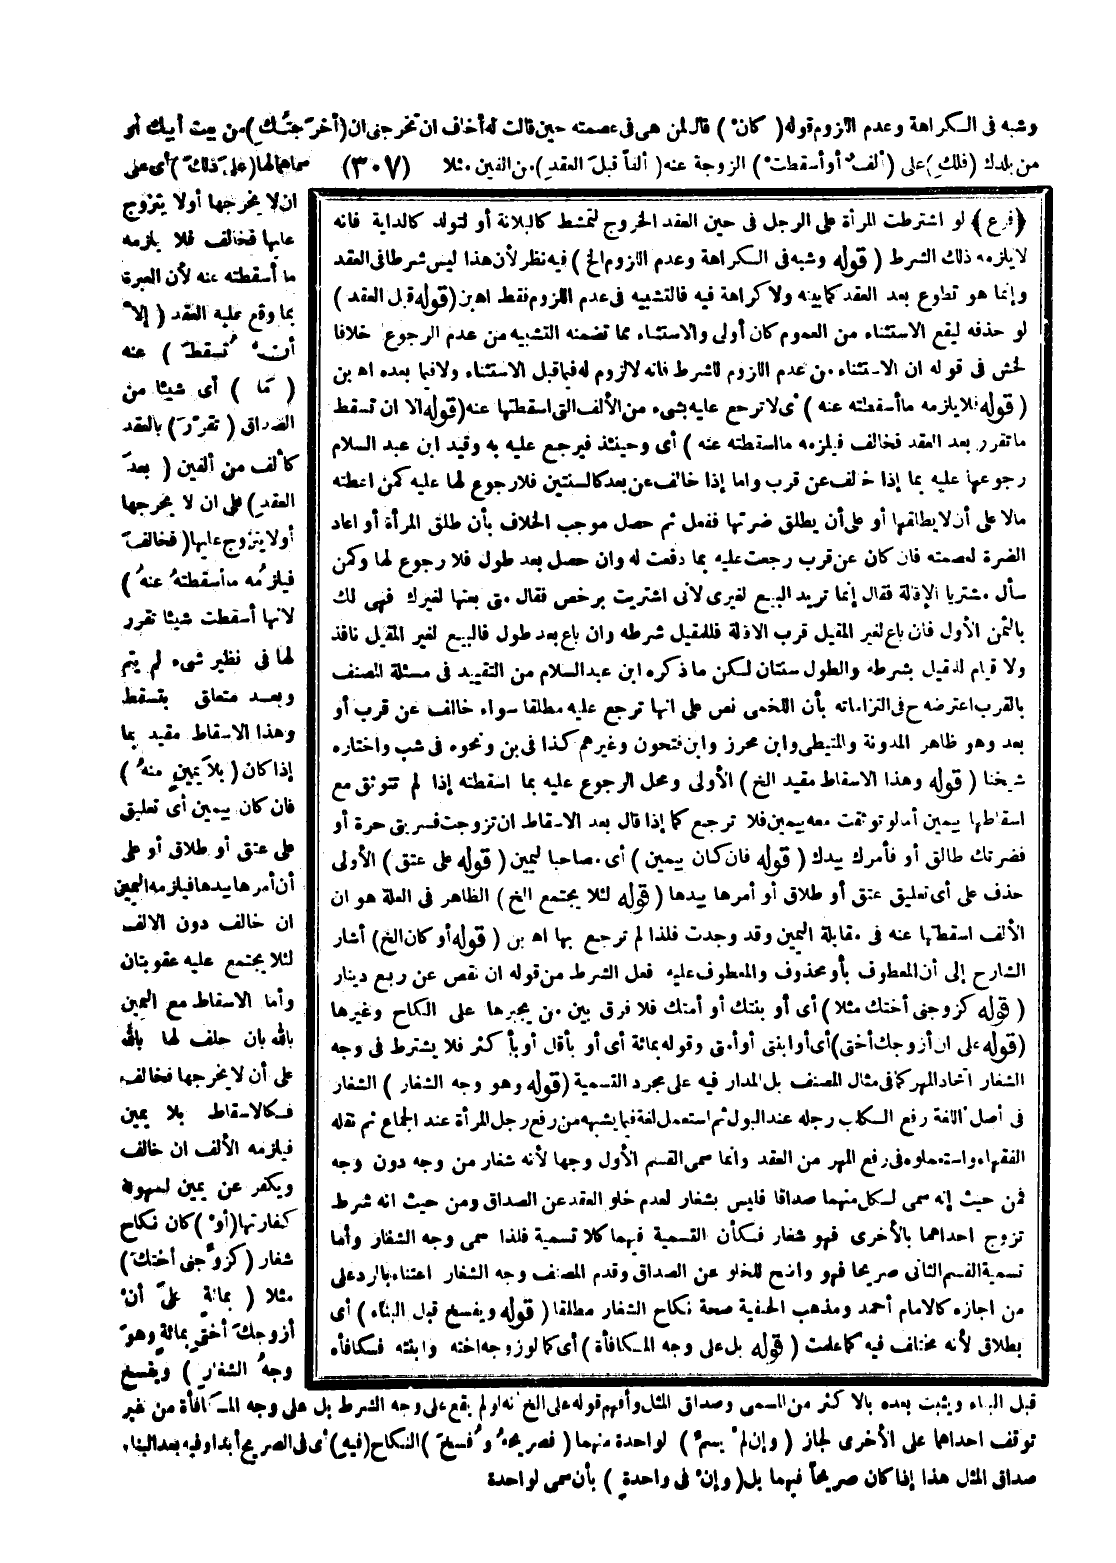 وشبه فى الكراهة وعدم اللزوم قوله ( كانْ ) قال لمن هى فى عصمته حين قالت له أخاف ان تخرجنى ان (أخرَجتُكِ) من بيت أبيك أو
من بلدك (فلكِ) على (ألفٌ أو أسقطتْ) الزوجة عنه ( ألفاً قبلَ العقدِ) من الفين مثلا (٣٠٧) سماهما لها (على ذلكَ) أى على
ان لا يخرجها أولا يتزوج
عليها فخالف فلا يلزمه
ما أسقطته عنه لأن العبرة
بما وقع عليه العقد ( إلاَّ
أنْ تُسقطَ ) عنه
( مَا ) أى شيئا من
الصداق ( تقرّرَ ) بالعقد
كألف من ألفين ( بعدَ
العقدِ ) على ان لا يخرجها
أولا يتزوج عليها ( فخالفَ
فيلزمُه ما أسقطتهُ عنهُ )
لانها أسقطت شيئا تقرر
لها فى نظير شىء لم يتم
وبعد متعلق بتسقط
وهذا الاسقاط مقيد بما
إذا كان ( بلاَ يمينٍ منهُ )
فان كان بيمين أى تعليق
على عتق أو طلاق أو على
أن أمرها بيدها فيلزمه اليمين
ان خالف دون الالف
لئلا يجتمع عليه عقوبتان
وأما الاسقاط مع اليمين
بالله بان حلف لها بالله
على أن لا يخرجها فخالف
فكالاسقاط بلا يمين
فيلزمه الألف ان خالف
ويكفر عن يمين لسهولة
كفارتها (أوْ) كان نكاح
شغار (كزوِّجنى أختكَ)
مثلا ( بمائةٍ علىّ أنْ
أزوجكَ أختى بمائةٍ وهوَ
وجهُ الشغارِ ) ويفسخ
﴿فرع﴾ لو اشترطت المرأة على الرجل فى حين العقد الخروج لتمشط كالبلانة أو لتولد كالداية فانه
لا يلزمه ذلك الشرط ( قوله وشبه فى الكراهة وعدم اللزوم الخ ) فيه نظر لأن هذا ليس شرطا فى العقد
وإنما هو تطوع بعد العقد كما بينه ولا كراهة فيه فالتشبيه فى عدم اللزوم فقط اه بن ( قوله قبل العقد )
لو حذفه ليقع الاستثناء من العموم كان أولى والاستثناء مما تضمنه التشبيه من عدم الرجوع خلافا
لخش فى قوله ان الاستثناء من عدم اللزوم للشرط فانه لا لزوم له فيما قبل الاستثناء ولا فيما بعده اه بن
( قوله فلا يلزمه ما أسقطته عنه ) أى لا ترجع عليه بشىء من الألف التى اسقطتها عنه ( قوله الا ان تسقط
ما تقرر بعد العقد فخالف فيلزمه ما اسقطته عنه ) أى وحينئذ فيرجع عليه به وقيد ابن عبد السلام
رجوعها عليه بما إذا خالف عن قرب واما إذا خالف عن بعد كالسنتين فلا رجوع لها عليه كمن اعطته
مالا على أن لا يطلقها أو على أن يطلق ضرتها ففعل ثم حصل موجب الخلاف بأن طلق المرأة أو اعاد
الضرة لعصمته فان كان عن قرب رجعت عليه بما دفعت له وان حصل بعد طول فلا رجوع لها وكمن
سأل مشتريا الإقالة فقال إنما تريد البيع لغيرى لأنى اشتريت برخص فقال متى بعتها لغيرك فهى لك
بالثمن الأول فان باع لغير المقيل قرب الاقالة فللمقيل شرطه وان باع بعد طول فالبيع لغير المقيل نافذ
ولا قيام للمقيل بشرطه والطول سنتان لكن ما ذكره ابن عبد السلام من التقييد فى مسئلة المصنف
بالقرب اعترضه ح فى التزاماته بأن اللخمى نص على انها ترجع عليه مطلقا سواء خالف عن قرب أو
بعد وهو ظاهر المدونة والمتيطى وابن محرز وابن فتحون وغيرهم كذا فى بن ونحوه فى شب واختاره
شيخنا ( قوله وهذا الاسقاط مقيد الخ ) الأولى ومحل الرجوع عليه بما اسقطته إذا لم تتوثق مع
اسقاطها بيمين أما لو توثقت معه بيمين فلا ترجع كما إذا قال بعد الاسقاط ان تزوجت فسريتى حرة أو
فضرتك طالق أو فأمرك بيدك ( قوله فان كان بيمين ) أى مصاحبا ليمين ( قوله على عتق ) الأولى
حذف على أى تعليق عتق أو طلاق أو أمرها بيدها ( قوله لئلا يجتمع الخ ) الظاهر فى العلة هو ان
الألف اسقطتها عنه فى مقابلة اليمين وقد وجدت فلذا لم ترجع بها اه بن ( قوله أو كان الخ ) أشار
الشارح إلى أن المعطوف بأو محذوف والمعطوف عليه فعل الشرط من قوله ان نقص عن ربع دينار
( قوله كزوجنى أختك مثلا ) أى أو بنتك أو أمتك فلا فرق بين من يجبرها على النكاح وغيرها
( قوله على ان أزوجك أختى ) أى أو ابنتى أو أمتى وقوله بمائة أى أو بأقل أو بأكثر فلا يشترط فى وجه
الشغار اتحاد المهر كما فى مثال المصنف بل المدار فيه على مجرد التسمية ( قوله وهو وجه الشغار ) الشغار
فى أصل اللغة رفع الكلب رجله عند البول ثم استعمل لغة فيما يشبهه من رفع رجل المرأة عند الجماع ثم نقله
الفقهاء واستعملوه فى رفع المهر من العقد وانما سمى القسم الأول وجها لأنه شغار من وجه دون وجه
فمن حيث إنه سمى لكل منهما صداقا فليس بشغار لعدم خلو العقد عن الصداق ومن حيث انه شرط
تزوج احداهما بالأخرى فهو شغار فكأن التسمية فيهما كلا تسمية فلذا سمى وجه الشغار وأما
تسمية القسم الثانى صريحا فهو واضح للخلو عن الصداق وقدم المصنف وجه الشغار اعتناء بالرد على
من اجازه كالامام أحمد ومذهب الحنفية صحة نكاح الشغار مطلقا ( قوله ويفسخ قبل البناء ) أى
بطلاق لأنه مختلف فيه كما علمت ( قوله بل على وجه المكافأة ) أى كما لو زوجه اخته وابنته فكافأه
قبل البناء ويثبت بعده بالاكثر من المسمى وصداق المثل وأفهم قوله على الخ انه لو لم يقع على وجه الشرط بل على وجه المكافأة من غير
توقف احداهما على الأخرى لجاز ( وإن لمْ يسمّ ) لواحدة منهما ( فصريحهُ وفُسخَ ) النكاح (فيهِ) أى فى الصريح أبدا وفيه بعد البناء
صداق المثل هذا إذا كان صريحاً فيهما بل ( وإنْ فى واحدةٍ ) بأن سمى لواحدة